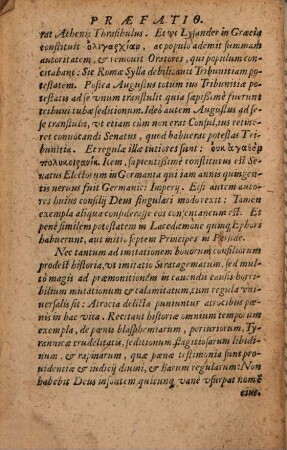 PRÆFATIO.
rat Athenis Thrasibulus. Et vt Lysander in Græcia
constituit ὀλιγαρχίαν, ac populo ademit summam
autoritatem, & remouit Oratores, qui populum con-
citabant: Sic Romæ Sylla debilitauit Tribunitiam po-
testatem. Postea Augustus totum ius Tribunitiæ po-
testatis ad se vnum transtulit quia sæpissimè fuerunt
tribuni tubæ seditionum. Ideò autem Augustus ad se-
se transtulit, vt etiam cùm non erat Consul, ius retine-
ret conuocandi Senatus, quod habuerat potestas Tri-
bunitia. Et regulæ illæ tutiores sunt: οὐκ ἀγαθὸν
πολυκοιρανίη. Item, sapientissimè constitutus est Se-
natus Electorum in Germania qui iam annis quingen-
tis neruus fuit Germanici Imperij. Etsi autem auto-
res huius consilij Deus singulari modo rexit: Tamen
exempla aliqua considerasse eos consentaneum est. Et
penè similem potestatem in Lacedæmone quinque Ephori
habuerunt, aut mitis septem Principes in Perside.
Nec tantum ad imitationem bonorum consiliorum
prodest historia, vt imitatio Strategematum, sed mul-
tò magis ad præmonitionem in cauendis causis horri-
bilium mutationum & calamitatum, cum regula vni-
uersalis sit: Atrocia delicta puniuntur atrocibus pœ-
nis in hac vita. Recitant historiæ omnium temporum
exempla, de pœnis blasphemiarum, periuriorum, Ty-
rannicæ crudelitatis, seditionum, flagitiosarum libidi-
num, & rapinarum, quæ pœnæ testimonia sunt pro-
uidentiæ & iudicij diuini, & harum regularum: Non
habebit Deus insontem quicunque vanè vsurpat nomen
eius.